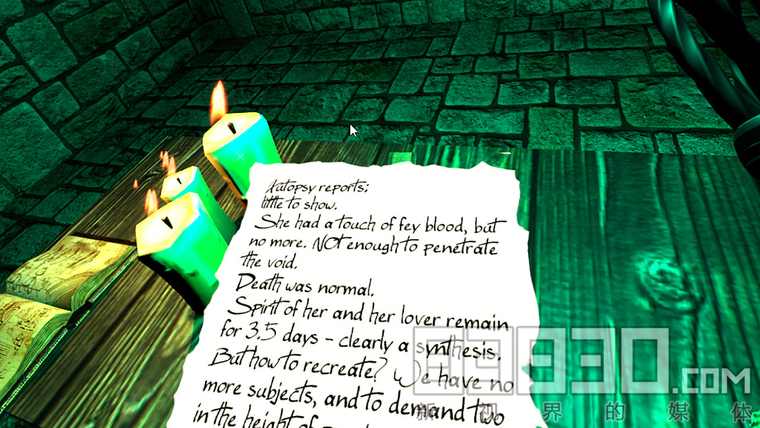 Autopsy reports;
little to show.
She had a touch of fey blood, but
no more. NOT enough to penetrate
the void.
Death was normal.
Spirit of her and her lover remain
for 3.5 days - clearly a synthesis.
But how to recreate? We have no
more subjects, and to demand two
in the height of
.com
新视界的媒体